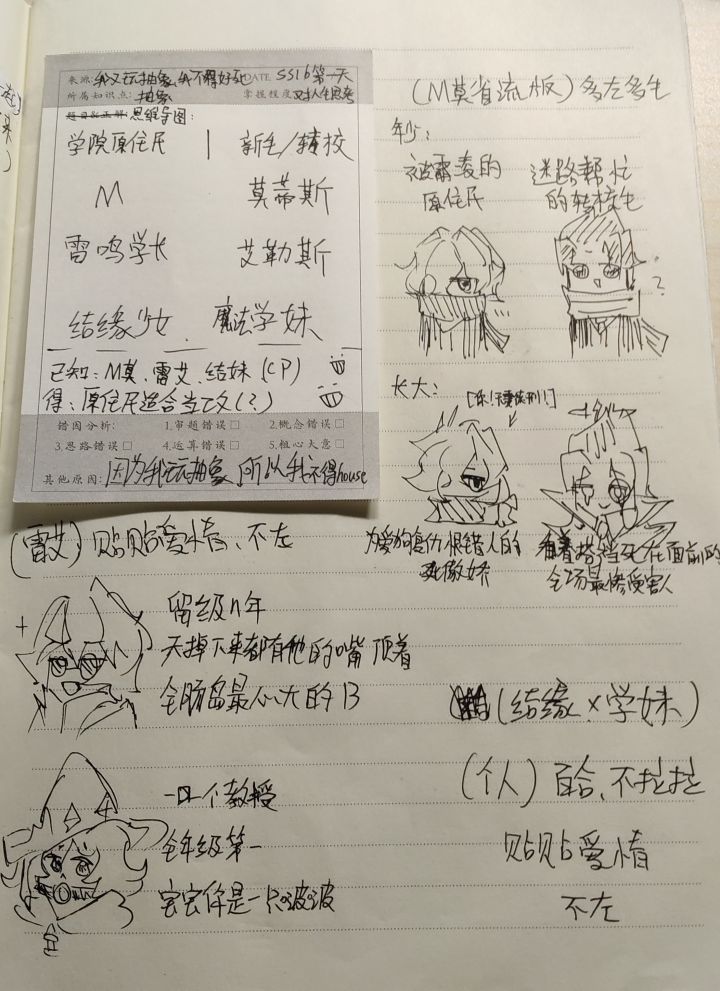 来源:我又玩抽象,我不得好死 DATE SS16第一天
所属知识点:抽象 掌握程度 对人生思考
思维导图:
学院原住民 | 新生/转校
M 莫蒂斯
雷鸣学长 艾勒斯
结缘少女 魔法学妹
已知:M莫、雷艾、结妹(CP)
得:原住民适合当乙女(?)
错因分析: 1.审题错误□ 2.概念错误□
3.思路错误□ 4.运算错误□ 5.粗心大意□
其他原因:因为我玩抽象,所以我不得house
(M莫省流版)多左多生
年少:
被霸凌的
原住民
迷路帮忙
的转校生
?
长大:
为爱狗急仇恨错人的
死傲娇
看着搭档死在面前的
全场最惨受害人
(雷艾)贴贴爱情、不左
留级n年
天掉下来都有他的嘴顶着
全肠岛最心大的B
一口一个教授
全年级第一
宝宝你是一只波波
(结缘×学妹)
(个人)百合、不拉拉
贴贴爱情
不左